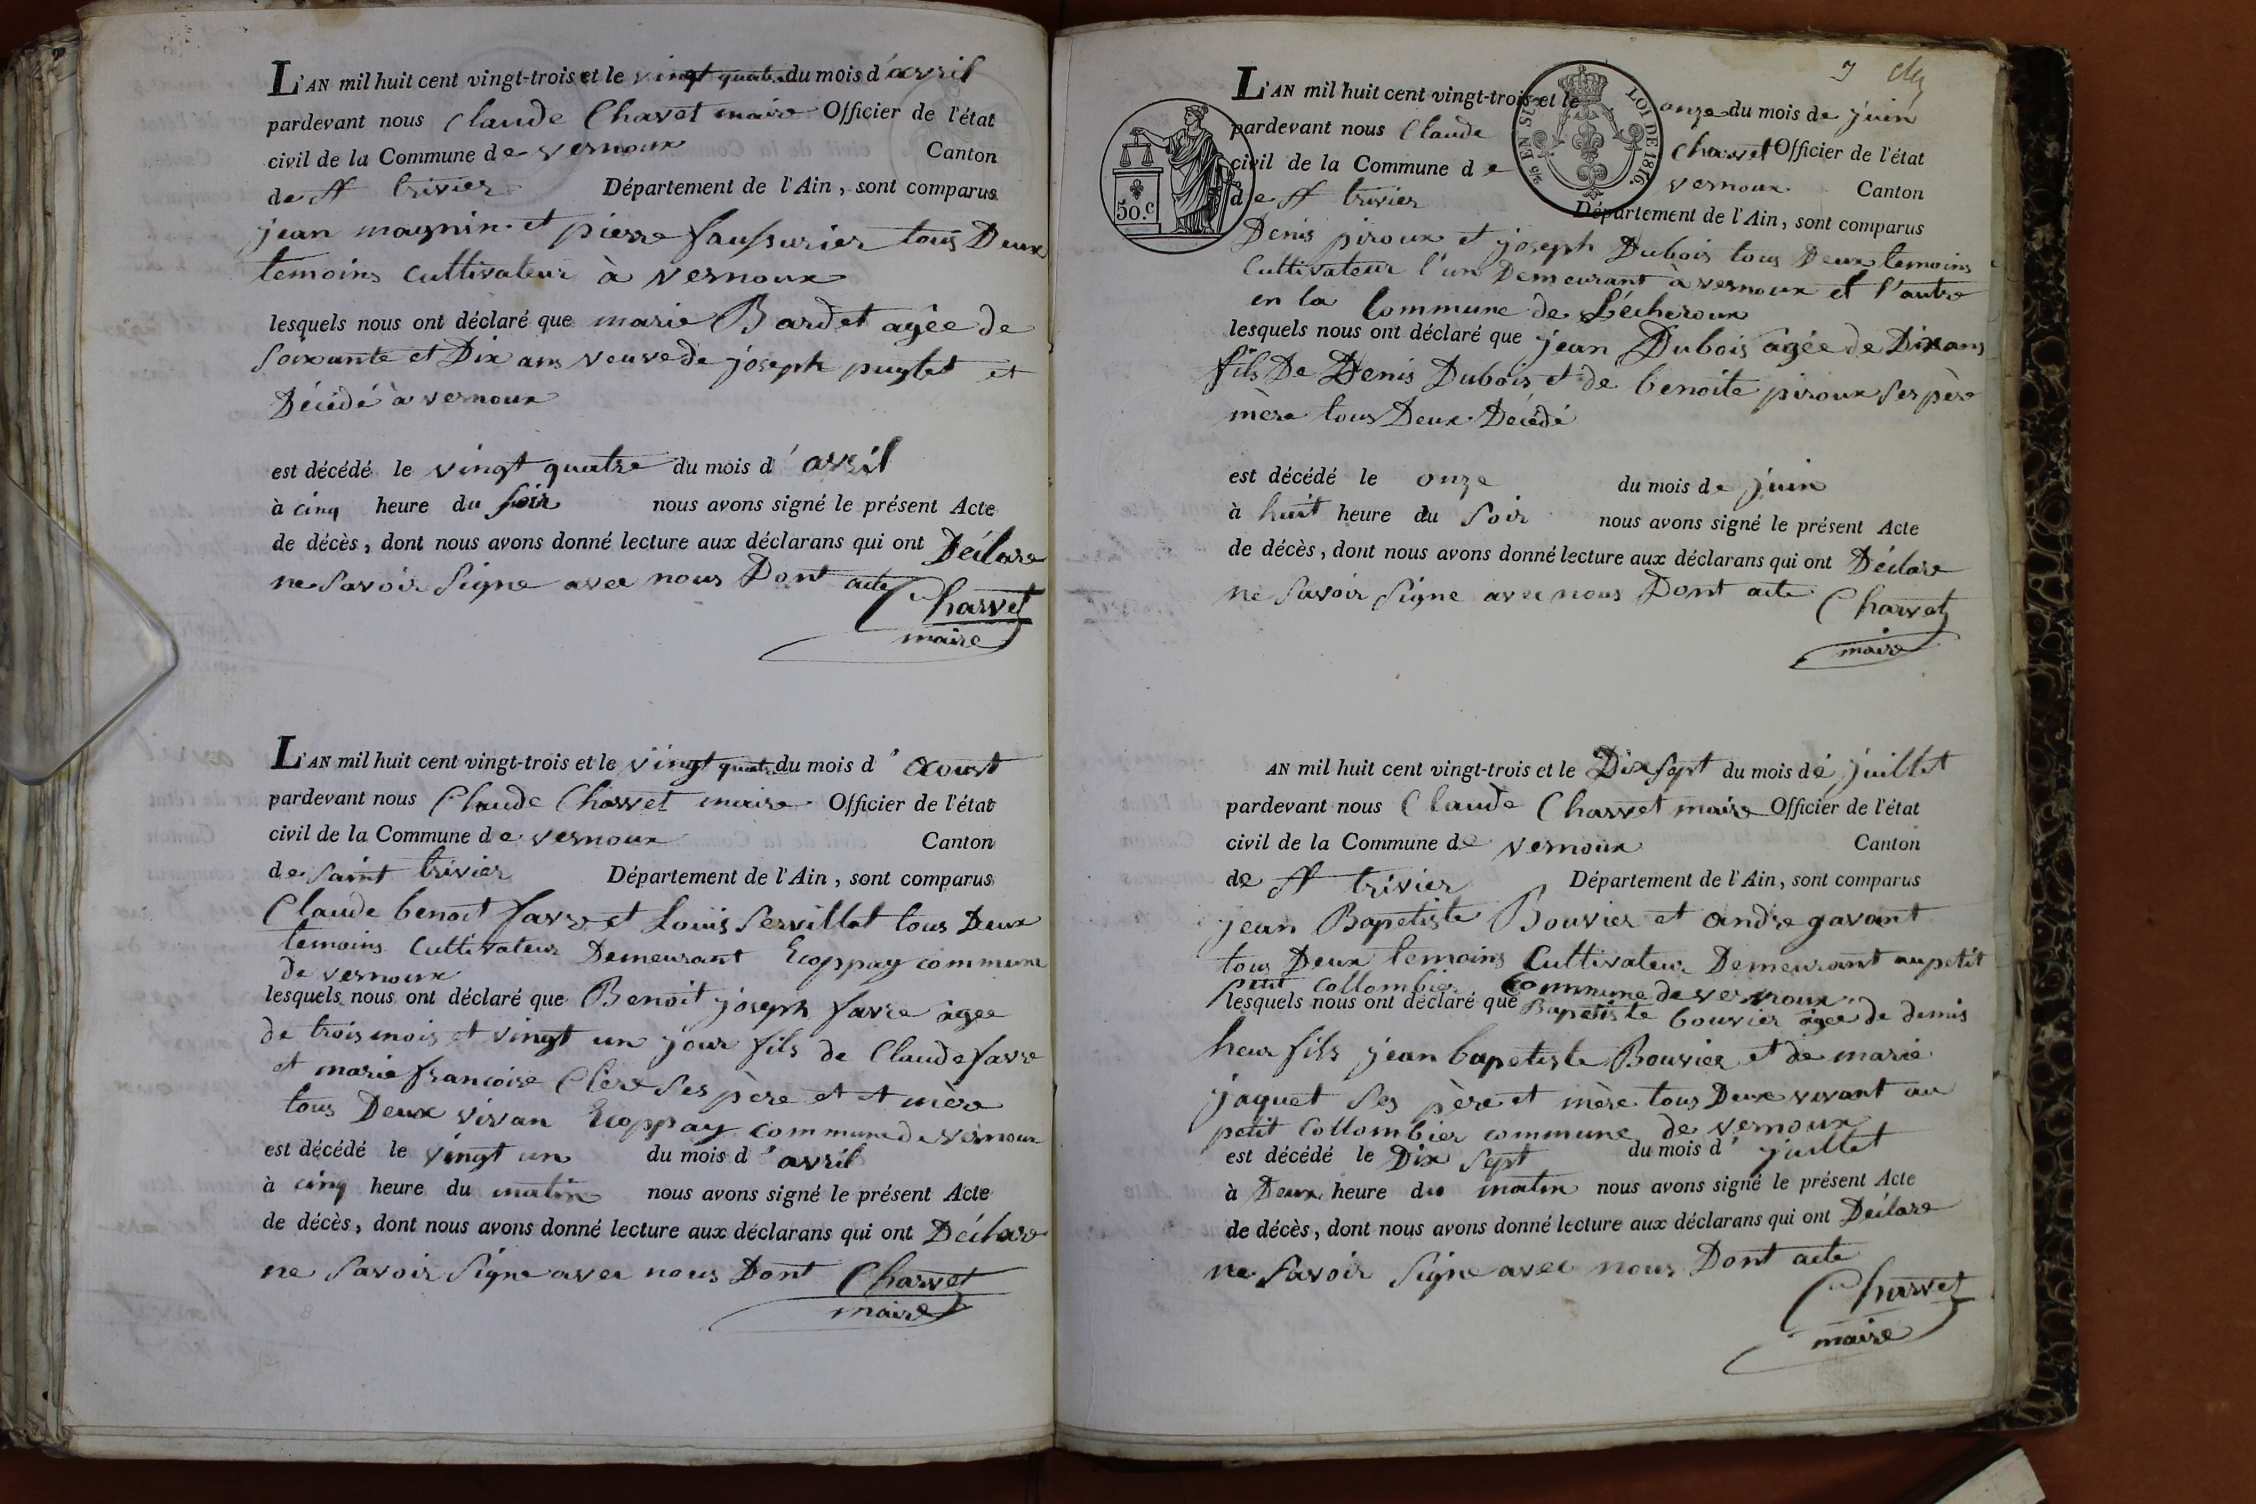 L'AN mil huit cent vingt-trois et le vingt quatre du mois d'avril
pardevant nous Claude Charvet maire Officier de l'état
civil de la Commune de vernoux Canton
de St trivier Département de l'Ain, sont comparus
jean magnin et pierre faussurier tous Deux
temoins cultivateur à vernoux
lesquels nous ont déclaré que marie Bardet agée de
soixante et Dix ans veuve de joseph puglet et
Décédé à vernoux
est décédé le vingt quatre du mois d'avril
à cinq heure du soir nous avons signé le présent Acte
de décès, dont nous avons donné lecture aux déclarans qui ont Déclare
ne savoir signe avec nous Dont acte
Charvet
maire
L'AN mil huit cent vingt-trois et le vingt quatre du mois d'aoust
pardevant nous Claude Charvet maire Officier de l'état
civil de la Commune de vernoux Canton
de saint trivier Département de l'Ain, sont comparus
Claude benoit favre et Louis Servillat tous Deux
temoins cultivateur Demeurant Ecoppay commune
de vernoux
lesquels nous ont déclaré que Benoit joseph favre agee
de trois mois et vingt un jour fils de Claude favre
et marie françoise Clere ses père et et mère
tous Deux vivan Ecoppay commune de vernoux
est décédé le vingt un du mois d'avril
à cinq heure du matin nous avons signé le présent Acte
de décès, dont nous avons donné lecture aux déclarans qui ont Déclare
ne savoir signe avec nous Dont Charvet
maire
L'AN mil huit cent vingt-trois et le onze du mois de juin
pardevant nous Claude Charvet Officier de l'état
civil de la Commune de vernoux Canton
de St trivier Département de l'Ain, sont comparus
EN SUS LOI DE 1816.
50.c
Denis piroux et joseph Dubois tous Deux temoins
Cultivateur l'un Demeurant à vernoux et l'autre
en la Commune de Lécheroux
lesquels nous ont déclaré que jean Dubois agée de Dix ans
fils De Denis Dubois et de benoite piroux ses père
mère tous Deux Décédé
est décédé le onze du mois de juin
à huit heure du soir nous avons signé le présent Acte
de décès, dont nous avons donné lecture aux déclarans qui ont Déclare
ne savoir signe avec nous Dont acte Charvet
maire
AN mil huit cent vingt-trois et le Dix sept du mois de juillet
pardevant nous Claude Charvet maire Officier de l'état
civil de la Commune de vernoux Canton
de St trivier Département de l'Ain, sont comparus
jean Bapetiste Bouvier et andre gavant
tous Deux temoins Cultivateur Demeurant au petit
petit Collombier Commune de vernoux
lesquels nous ont déclaré que Bapetiste bouvier agee de demis
heur fils jean bapetiste Bouvier et de marie
jaquet ses père et mère tous Deux vivant au
petit Collombier commune de vernoux
est décédé le Dix sept du mois d'juillet
à Deux heure du matin nous avons signé le présent Acte
de décès, dont nous avons donné lecture aux déclarans qui ont Déclare
ne savoir signe avec nous Dont acte
Charvet
maire